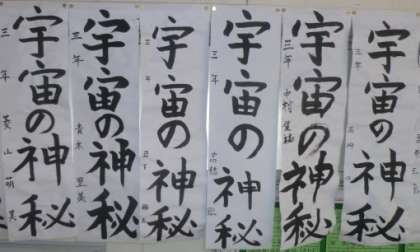 宇宙の神秘
三年
宇宙の神秘
三年 中村
宇宙の神秘
三年
宇宙の神秘
三年
宇宙の神秘
三年 青木 里美
宇宙の神秘
三年 山 萌